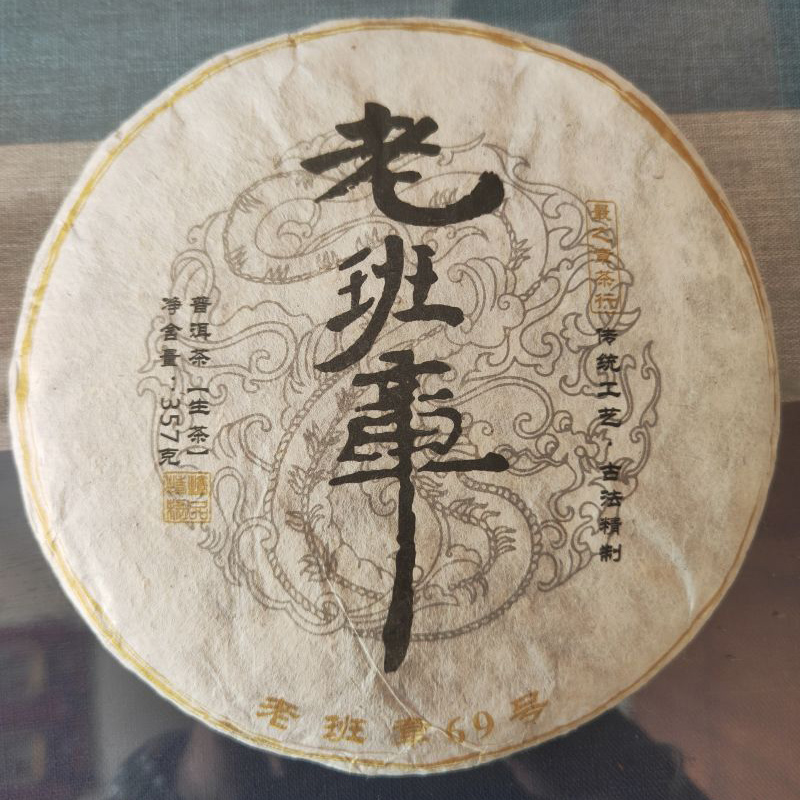 老班章
传统工艺，古法精制
普洱茶【生茶】
净含量：357克
老班章69号